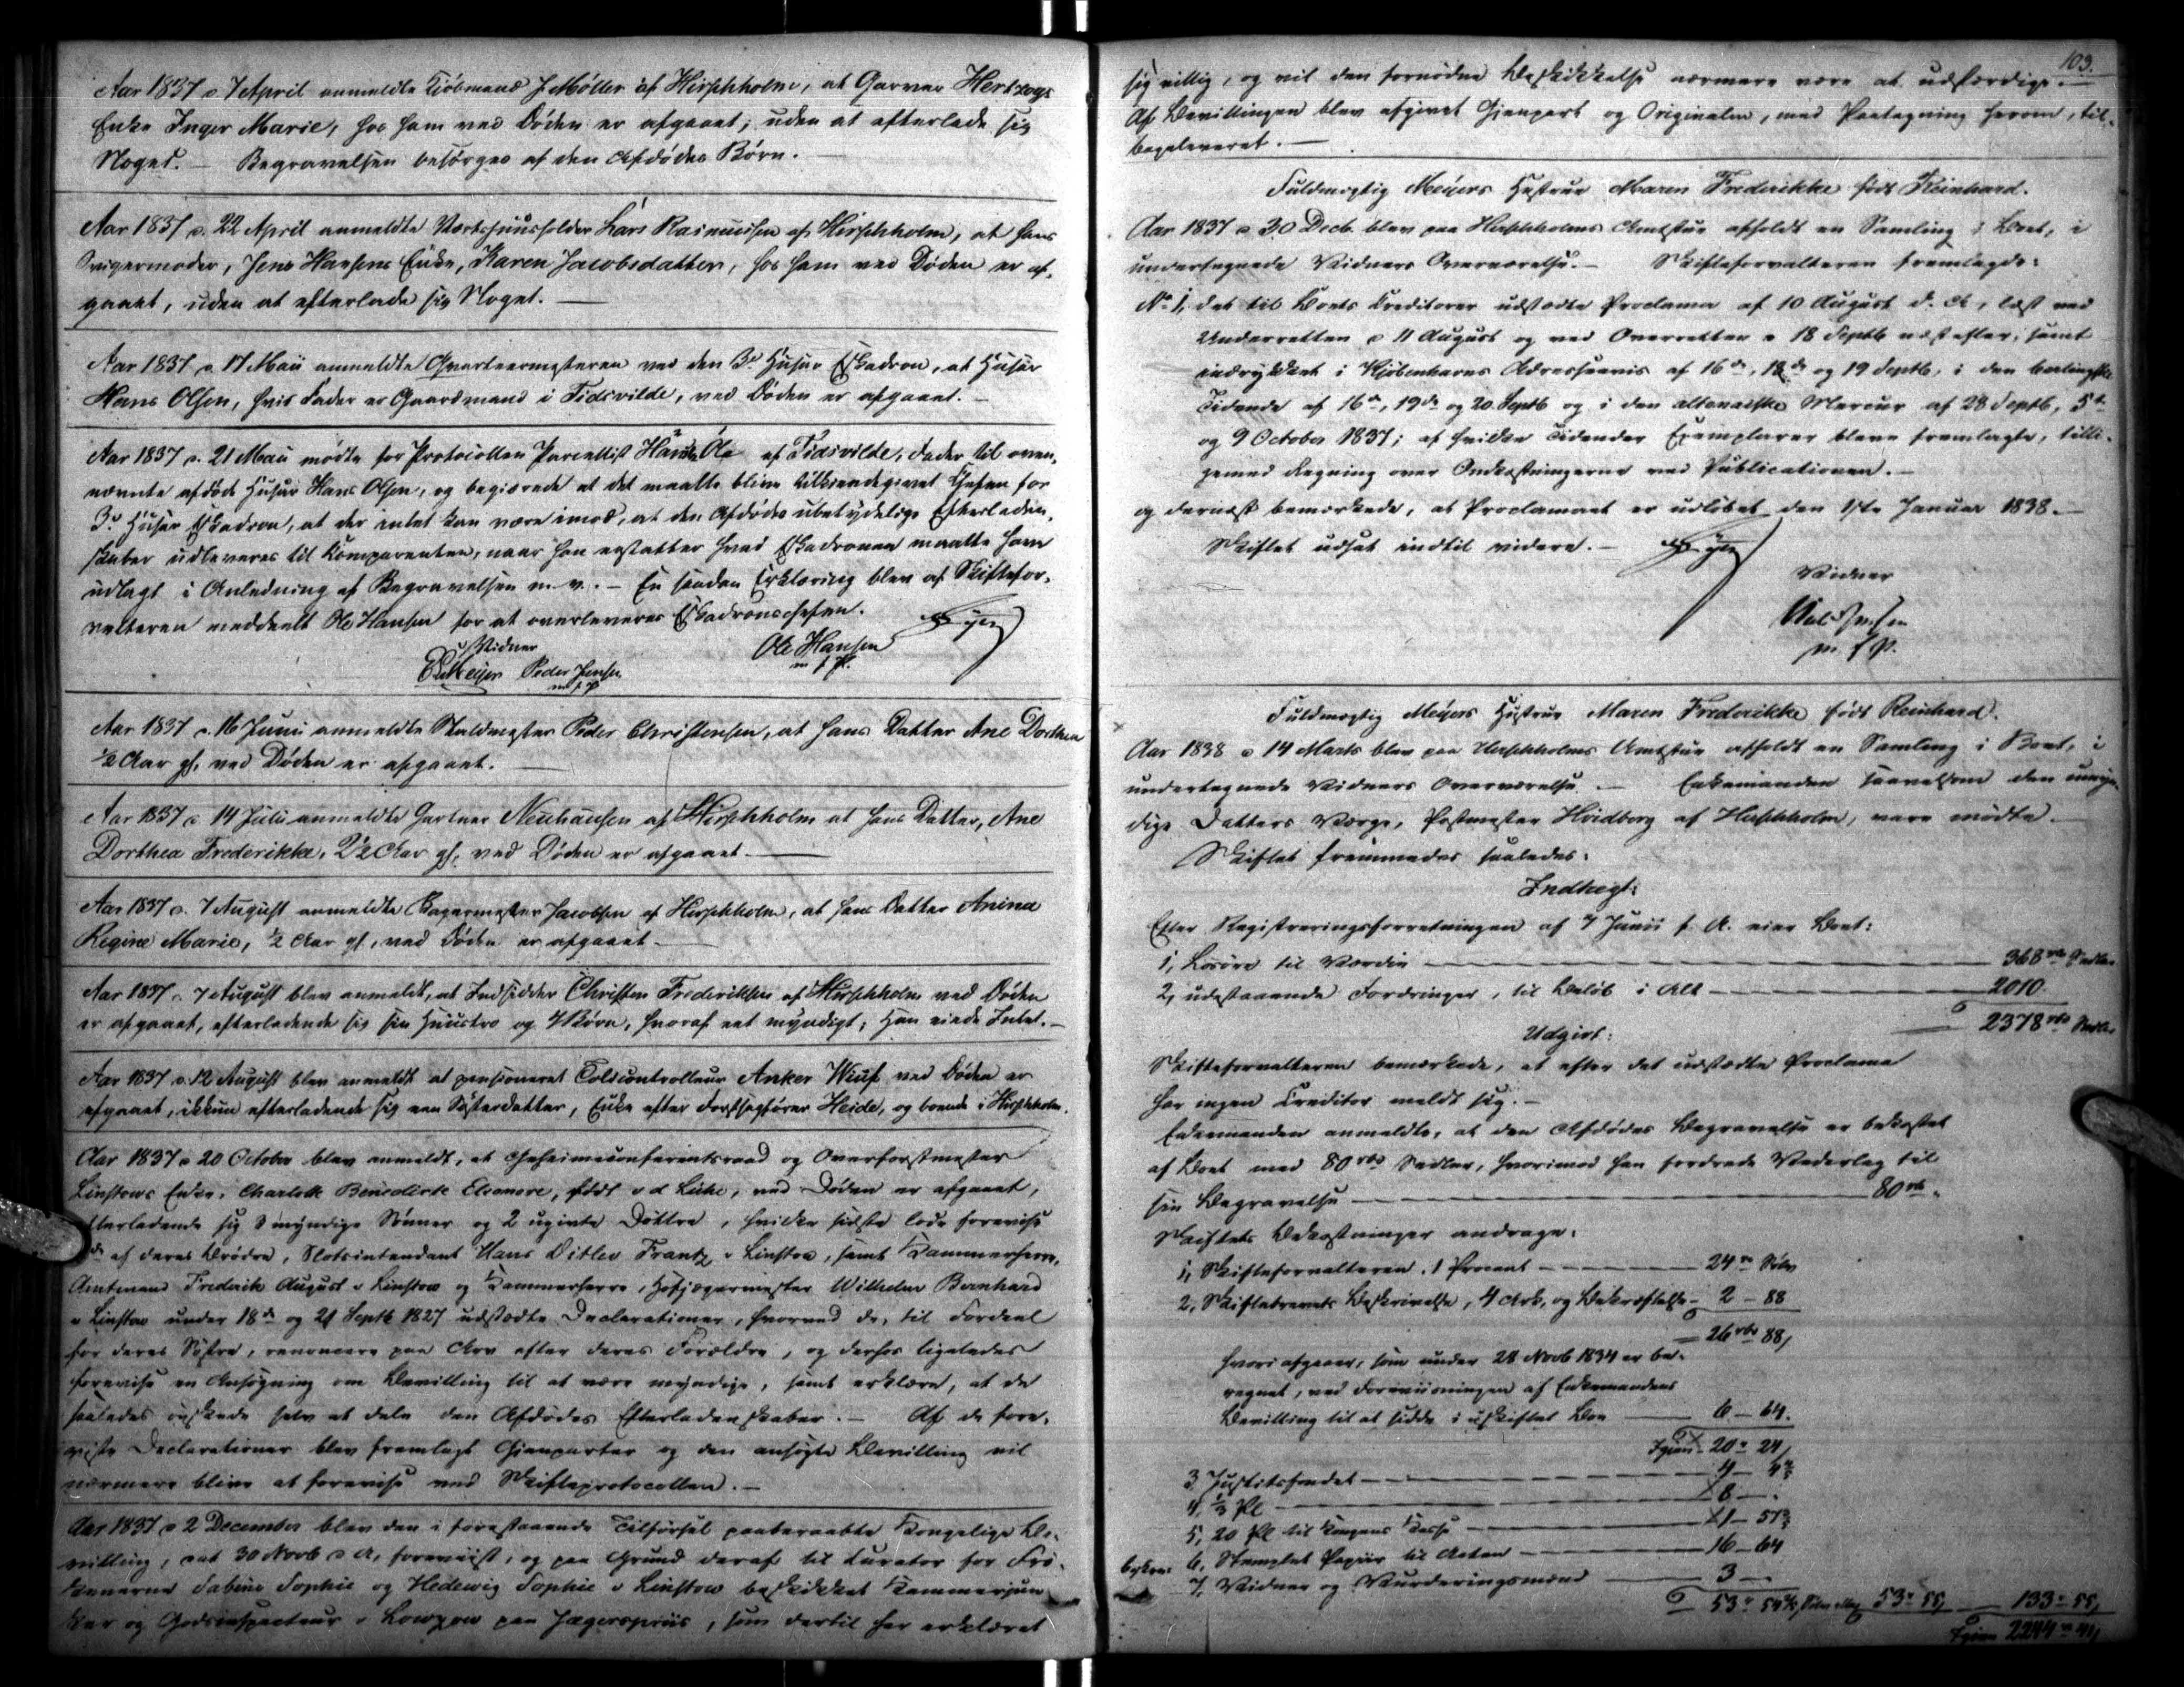 Aar 1837 d. 7 April anmeldte Kjöbmand J Möller af Hirschholm, at Garver Hertzogs
Enke Inger Marie, hos ham ved Döden er afgaaet; uden at efterlade sig
Noget. – Begravelsen besörges af den Afdödes Börn.
Aar 1837 d. 22 April anmeldte Vertshuusholder Lars Rasmussen af Hirschholm, at hans
Svigermoder, Jens Hansens Enke, Karen Jacobsdatter, hos ham ved Döden er af-
gaaet, uden at efterlade sig Noget. –
Aar 1837 d. 17 Maii anmeldte Qvarteermesteren ved den 3de Husar Eskadron, at Husar
Hans Olsen, hvis Fader er Gaardmand i Tidsvilde, ved Döden er afgaaet. –
Aar 1837 d. 21 Maii mödte for Protocollen Parcellist Hans Ole af Tidsvilde, Fader til oven-
nævnte afdöde Husar Hans Olsen, og begjærede at det maatte blive tilkiendegivet Chefen for
3de Husar Eskadron, at der intet kan være imod, at den Afdödes ubetydelige Efterladen-
skaber udleveres til Comparenten, naar han erstatter hvad Eskadronen maatte have
udlagt i Anledning af Begravelsen m. v. – En saadan Erklæring blev af Skiftefor-
valteren meddeelt Ole Hansen for at overleveres Eskadronschefen.
Vidner Ole Hansen
Meijer Peder Jensen m f P.
m f P
Aar 1837 d. 16 Junii anmeldte Staldmester Peder Christensen, at hans Datter Ane Dorthea
½ Aar gl, ved Döden er afgaaet.
Aar 1837 d. 14 Julii anmeldte Gartner Neuhausen af Hirschholm at hans Datter, Ane
Dorthea Frederikke, 2½ Aar gl, ved Döden er afgaaet. –
Aar 1837 d. 7 August anmeldte Bagermester Jacobsen af Hirschholm, at hans Datter Anina
Regine Marie, ½ Aar gl, ved Döden er afgaaet –
Aar 1837 d. 7 August blev anmeldt, at Indsidder Christen Frederiksen af Hirschholm ved Döden
er afgaaet, efterladende sig sin Huustro og 7 Börn, hvoraf eet myndigt; han eiede Intet. –
Aar 1837 d. 12 August blev anmeldt at pensioneret Toldcontrolleur Anker Wiuf ved Döden er
afgaaet, ikkun efterladende sig een Sösterdatter, Enke efter Heide, og boende i Hirschholm.
Aar 1837 d 20 October blev anmeldt, at Geheimeconferentsraad og Overforstmester
Linstows Enke, Charlotte Benedicte Eleonore, födt v d Lühe, ved Döden er afgaaet,
efterladende sig 3 myndige Sönner og 2 ugivte Döttre, hvilke sidste lode forevise
de af deres Brödre, Slotsintendant Hans Ditlev Frantz v Linstow, samt Kammerherre,
Amtmand Frederik August v Linstow og Kammerherre, Hofjægermester Wilhelm Bernhard
v Linstow under 18de og 21 Septb 1827 udstædte Declarationer, hvorved de, til Fordeel
for deres Söstre, renoncere paa Arv efter deres Forældre, og derhos ligeledes
forevise en Ansögning om Bevilling til at være myndige, samt erklære, at de
saaledes önskede selv at dele den Afdödes Efterladenskaber. – Af de fore-
viste Declarationer blev fremlagt Gjenparter og den ansögte Bevilling vil
nærmere blive at forevise ved Skifteprotocollen. –
Aar 1837 d 2 December blev den i forestaaende Tilförsel paaberaabte Kongelige Be-
villing, dat 30 Novb d A, foreviist, og paa Grund deraf til Curator for Frö-
kenerne Sabine Sophie og Hedewig Sophie v Linstow beskikket Kammerjun-
ker og Godsinspecteur v Lowzow paa Jægerspriis, som dertil har erklæret
103.
sig villig, og vil den fornödne Beskikkelse nærmere være at udfærdige. –
Af Bevillingen blev afgivet Gjenpart og Originalen, med Paategning herom, til-
bageleveret. –
Fuldmægtig Meijers Hustrue Maren Frederikke födt Reinhard.
Aar 1837 d 30 Decb. blev paa Hirschholms Amtstue afholdt en Samling i Boet, i
undertegnede Vidners Overværelse. – Skifteforvalteren fremlagde:
No 1, det til Boets Creditorer udstædte Proclama af 10 August d. A, læst ved
Underretten d 11 August og ved Overretten d 18 Septb næstefter, samt
indrykket i Kjöbenhavns Adresseavis af 16de, 18de og 19 Septb, i den berlingske
Tidende af 16de, 19de og 20 Septb og i den altonaiske Mercur af 28 Septb, 5te
og 9 October 1837; af hvilke Tidender Exemplarer bleve fremlagte, tilli-
gemed Regning over Omkostningerne ved Publicationen. –
og dernæst bemærkede, at Proclamaet er udlöbet den 1ste Januar 1838. –
Skiftet udsat indtil videre. –
Vidner
m f P.
Fuldmægtig Meijers Hustrue Maren Frederikke födt Reinhard.
Aar 1838 d 14 Marts blev paa Hirschholms Amtstue afholdt en Samling i Boet, i
undertegnede Vidners Overværelse. – Enkemanden saavelsom den umyn-
dige Datters Værge, Postmester Höidberg af Hirschholm, vare mödte. –
Skiftet fremmedes saaledes:
Indtægt:
Efter Registreringsforretningen af 7 Junii f. A. eier Boet:
1, Lösöre til Værdie – 368 rbd Sedler
2, udestaaende Fordringer, til Belöb i Alt – 2010.
2378 rbd Sedler
Udgivt:
Skifteforvalteren bemærkede, at efter det udstædte Proclama
har ingen Creditor meldt sig. –
Enkemanden anmeldte, at den Afdödes Begravelse er bekostet
af Boet med 80 rbd Sedler, hvorimod han fordrede Vederlag til
sin Begravelse – 80 rb "
Skiftets Bekostninger andrage:
1, Skifteforvalteren, 1 Procent – 24 rb Sölv
2, Skiftebrevets Beskrivelse, 4 Ark, og Bekræftelse – 2 – 88
26 rbd 88,
hvori afgaaer, som under 28 Novb 1834 er be-
regnet, ved Foreviisningen af Enkemandens
Bevilling til at sidde i uskiftet Boe – 6 – 64.
Igien 20 – 24,
3 Justitsfondet – 4 – 4
4, ⅓ Pct – 8 –
5, 20 Pct til Kongens Kasse – 1 – 51
6, Stemplet Papiir til Acten – 16 – 64
7, Vidner og Vurderingsmænd – 3 –
53 Sölv eller 53 – 55, 133 – 55,
Igien 2244 – 41,